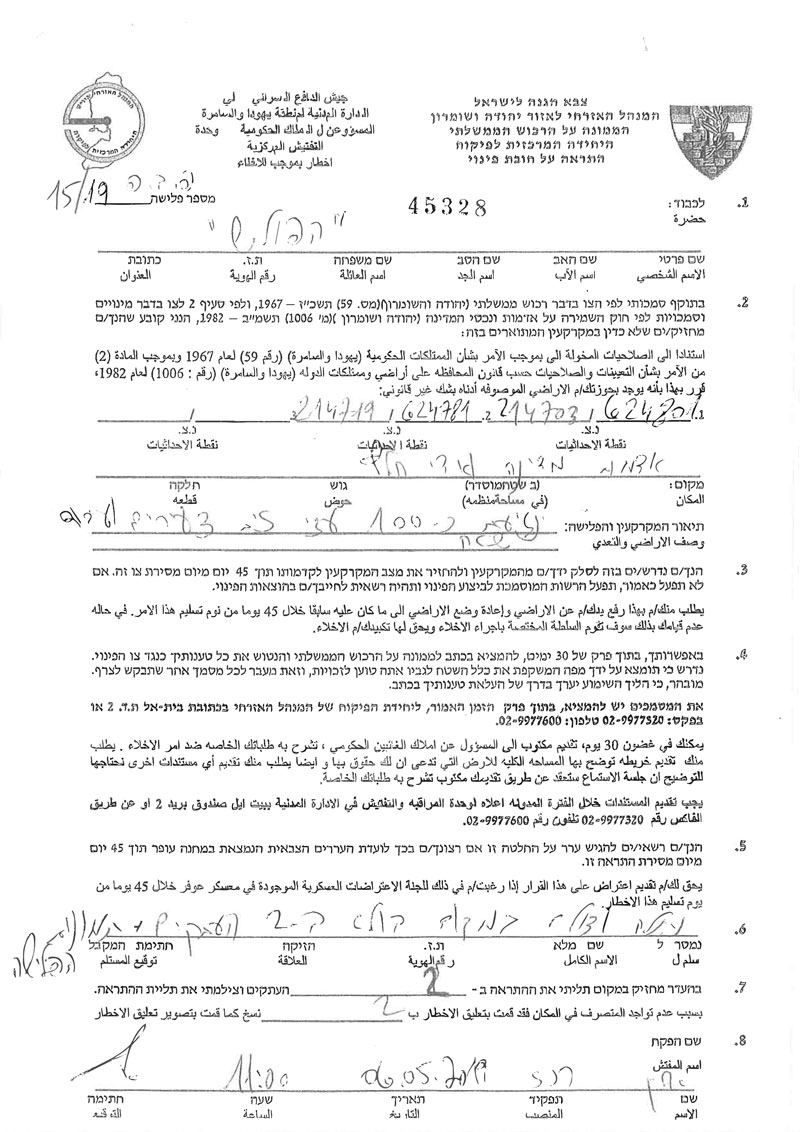 جيش الدافع السرائي لي
الدارة المدنية لمنطقة يهودا والسامرة
المسؤوعن ل الملك الحكومية وحدة
التفتيش المركزية
اخطار بموجب للاخلاء
צבא הגנה לישראל
המנהל האזרחי לאזור יהודה ושומרון
הממונה על הרכוש הממשלתי
היחידה המרכזית לפיקוח
התראה על חובת פינוי
מספר פלישה 15/19
45328
.1 לכבוד:
حضرة
"הפולש"
שם פרטי שם האב שם הסב שם משפחה ת.ז. כתובת
الاسم الشخصي اسم الأب اسم الجد اسم العائلة رقم الهوية العنوان
.2 בתוקף סמכותי לפי הצו בדבר רכוש ממשלתי (יהודה והשומרון)(מס. 59) תשכ"ז – 1967, ולפי סעיף 2 לצו בדבר מינויים
וסמכויות לפי חוק השמירה על אדמות ונכסי המדינה (יהודה ושומרון )(מי 1006) תשמ"ב – 1982, הנני קובע שהנך/ם
מחזיק/ים שלא כדין במקרקעין המתוארים בזה:
استنادا الى الصلاحيات المخولة الى بموجب الأمر بشأن الممتلكات الحكومية (يهودا والسامرة) (رقم 59) لعام 1967 وبموجب المادة (2)
من الأمر بشأن التعيينات والصلاحيات حسب قانون المحافظه على أراضي وممتلكات الدوله (يهودا والسامرة) (رقم : 1006) لعام 1982،
قرر بهذا بأنه يوجد بحوزتك/م الاراضي الموصوفه أدناه بشك غير قانوني:
.1 214703 / 624801 .2 214719 / 624781 .3 /
נ.צ. נ.צ. נ.צ.
نقطة الاحداثيات نقطة الاحداثيات نقطة الاحداثيات
אדמות מדינה ואדי
מקום: (ב שטח מוסדר) גוש חלקה
المكان (في مساحة منظمه) حوض قطعه
תיאור המקרקעין והפלישה: נטיעת כ-100 עצי זית צעירים
وصف الاراضي والتعدي
.3 הנך/ם נדרש/ים בזה לסלק ידך/ם מהמקרקעין ולהחזיר את מצב המקרקעין לקדמותו תוך 45 יום מיום מסירת צו זה. אם
לא תפעל כאמור, תפעל הרשות המוסמכת לביצוע הפינוי ותהיה רשאית לחייבך/ם בהוצאות הפינוי.
يطلب منك/م بهذا رفع يدك/م عن الاراضي وإعادة وضع الاراضي الى ما كان عليه سابقا خلال 45 يوما من نوم تسليم هذا الامر. في حاله
عدم قيامك بذلك سوف تقوم السلطة المختصة باجراء الاخلاء ويحق لها تكبيدك/م الاخلاء.
.4 באפשרותך, בתוך פרק של 30 ימים, להמציא בכתב לממונה על הרכוש הממשלתי והנטוש את כל טענותיך כנגד צו הפינוי.
נדרש כי תומצא על ידך מפה המשקפת את כלל השטח לגביו אתה טוען לזכויות, וזאת מעבר לכל מסמך אחר שתבקש לצרף.
מובהר, כי הליך השימוע יערך בדרך של העלאת טענותיך בכתב.
את המסמכים יש להמציא, בתוך פרק הזמן האמור, ליחידת הפיקוח של המנהל האזרחי בכתובת בית-אל ת.ד. 2 או
בפקס: 02-9977320 טלפון: 02-9977600.
يمكنك في غضون 30 يوم، تقديم مكتوب الى المسؤول عن املاك الغائبين الحكومي ، تشرح به طلباتك الخاصه ضد امر الاخلاء . يطلب
منك تقديم خريطه توضح بها المساحه الكليه للارض التي تدعى ان لك حقوق بها و ايضا يطلب منك تقديم أي مستندات اخرى تحتاجها
للتوضيح ان جلسة الاستماع ستعقد عن طريق تقديمك مكتوب تشرح به طلباتك الخاصة.
يجب تقديم المستندات خلال الفترة المدونه اعلاه لوحدة المراقبه والتفتيش في الادارة المدنية ببيت ايل صندوق بريد 2 او عن طريق
الفاكس رقم 02-9977320 تلفون رقم 02-9977600.
.5 הנך/ם רשאי/ים להגיש ערר על החלטה זו אם רצונך/ם בכך לועדת העררים הצבאית הנמצאת במחנה עופר תוך 45 יום
מיום מסירת התראה זו.
يحق لك/م تقديم اعتراض على هذا القرار إذا رغبت/م في ذلك للجنة الاعتراضات العسكرية الموجودة في معسكر عوفر خلال 45 يوما من
يوم تسليم هذا الاخطار.
.6 במקום ב-2 העתקים
הפלישה
נמסר ל שם מלא ת.ז. הזיקה חתימת המקבל
سلم ل الاسم الكامل رقم الهوية العلاقة توقيع المستلم
.7 בהעדר מחזיק במקום תליתי את ההתראה ב - 2 העתקים וצילמתי את תליית ההתראה.
بسبب عدم تواجد المتصرف في المكان فقد قمت بتعليق الاخطار ب 2 نسخ كما قمت بتصوير تعليق الاخطار
.8 שם הפקח
اسم المفتش
06.05.2019 11:00
שם תפקיד תאריך שעה חתימה
الاسم المنصب التاريخ الساعة التوقيع